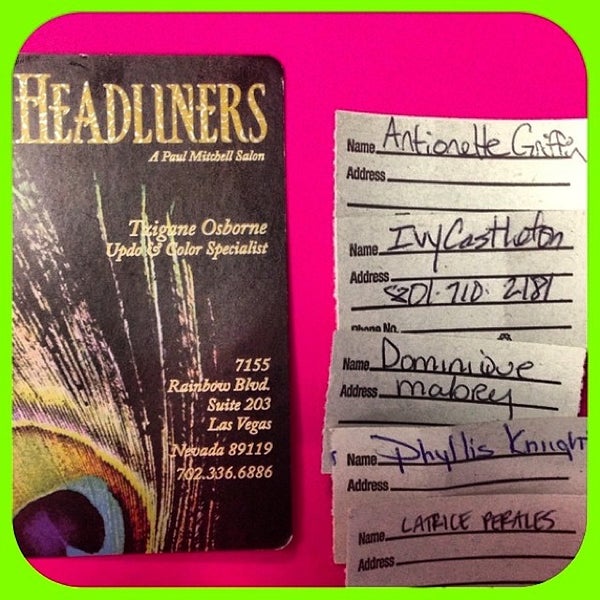 HEADLINERS
A Paul Mitchell Salon
Tzigane Osborne
Updo & Color Specialist
7155
Rainbow Blvd.
Suite 203
Las Vegas
Nevada 89119
702.336.6886
Name Antionette Griffin
Address
Name Ivy Castleton
Address
801.710.2181
Phone No.
Name Dominique
Address mabrey
Name Phyllis Knight
Address
Name LATRICE PERALES
Address